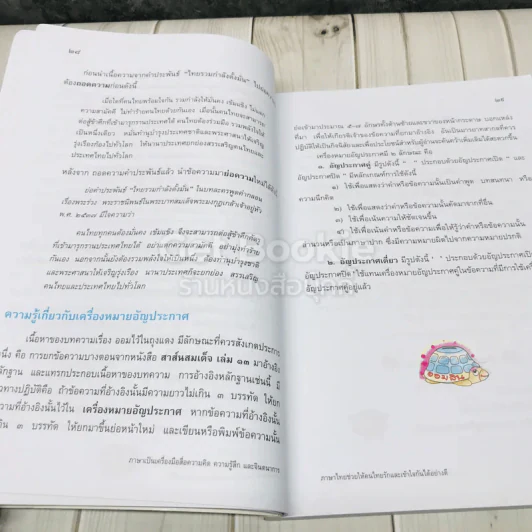 ๒๘
ก่อนนำเนื้อความจากคำประพันธ์ "ไทยรวมกำลังตั้งมั่น"
ต้องถอดความก่อนดังนี้
เมื่อใดที่คนไทยพร้อมใจกัน รวมกำลังให้มั่นคง เข้มแข็ง
ความสามัคคี ไม่ทำร้ายคนไทยด้วยกันเอง เมื่อนั้นคนไทยจะสามารถ
ต่อสู้ข้าศึกที่เข้ามารุกรานประเทศได้ คนไทยต้องร่วมใจ
เป็นหนึ่งเดียว หมั่นทำนุบำรุงประเทศชาติและพระศาสนาให้เจริญ
รุ่งเรืองก้องไปทั่วโลก ให้นานาประเทศสรรเสริญคนไทยและ
ประเทศไทยไปทั่วโลก
หลังจาก ถอดความคำประพันธ์แล้ว นำข้อความมาย่อความใหม่ได้ดังนี้
ย่อคำประพันธ์ "ไทยรวมกำลังตั้งมั่น" ในบทละครพูดคำกลอน
เรื่องพระร่วง พระราชนิพนธ์ในพระบาทสมเด็จพระมงกุฎเกล้าเจ้าอยู่หัว
พ.ศ. ๒๔๖๗ มีใจความว่า
คนไทยทุกคนต้องมั่นคง เข้มแข็ง จึงจะสามารถต่อสู้ข้าศึกศัตรู
ที่เข้ามารุกรานประเทศไทยได้ อย่าแตกความสามัคคี อย่ามุ่งทำร้าย
กันเอง นอกจากนั้นยังต้องรวมพลังใจให้เป็นหนึ่ง ต้องทำนุบำรุงชาติ
และพระศาสนาให้เจริญรุ่งเรือง นานาประเทศก็จะยกย่อง สรรเสริญ
คนไทยและประเทศไทยไปทั่วโลก
ความรู้เกี่ยวกับเครื่องหมายอัญประกาศ
เนื้อหาของบทความเรื่อง ออมไว้ในถุงแดง มีลักษณะที่ควรสังเกตประการ
หนึ่ง คือ การยกข้อความบางตอนจากหนังสือ สาส์นสมเด็จ เล่ม ๑๓ มาอ้างอิง
หลักฐาน และแทรกประกอบเนื้อหาของบทความ การอ้างอิงหลักฐานเช่นนี้ มี
แนวทางปฏิบัติคือ ถ้าข้อความที่อ้างอิงนั้นมีความยาวไม่เกิน ๓ บรรทัด ให้ยก
ความที่อ้างอิงนั้นไว้ใน เครื่องหมายอัญประกาศ หากข้อความที่อ้างอิงนั้น
เกิน ๓ บรรทัด ให้ยกมาขึ้นย่อหน้าใหม่ และเขียนหรือพิมพ์ข้อความนั้น
ภาษาเป็นเครื่องมือสื่อความคิด ความรู้สึก และจินตนาการ
๒๙
ย่อเข้ามาประมาณ ๕-๗ อักษรทั้งด้านซ้ายและขวาของหน้ากระดาษ บอกแหล่ง
ที่มา เพื่อให้เกียรติเจ้าของข้อความที่ยกมาอ้างอิง อันเป็นมารยาทสากลที่ควร
ปฏิบัติให้เป็นกิจนิสัยและเพื่อประโยชน์สำหรับผู้อ่านจะค้นคว้าเพิ่มเติมได้สะดวกขึ้น
เครื่องหมายอัญประกาศมี ๒ ลักษณะ คือ
๑. อัญประกาศคู่ มีรูปดังนี้ " " ประกอบด้วยอัญประกาศเปิด " และ
อัญประกาศปิด " มีหลักเกณฑ์การใช้ดังนี้
๑) ใช้เพื่อแสดงว่าคำหรือข้อความนั้นเป็นคำพูด บทสนทนา หรือ
ความนึกคิด
๒) ใช้เพื่อแสดงว่าคำหรือข้อความนั้นคัดมาจากที่อื่น
๓) ใช้เพื่อเน้นความให้ชัดเจนขึ้น
๔) ใช้เพื่อเน้นคำหรือข้อความเพื่อให้รู้ว่าคำหรือข้อความนั้นเป็น
สำนวนหรือเป็นภาษาปาก ซึ่งมีความหมายผิดไปจากความหมายปรกติ
๒. อัญประกาศเดี่ยว มีรูปดังนี้ ' ' ประกอบด้วยอัญประกาศเปิด
อัญประกาศปิด ' ใช้แทนเครื่องหมายอัญประกาศคู่ในข้อความที่มีการใช้เครื่อง
อัญประกาศคู่อยู่แล้ว
ออมสิน
ภาษาไทยช่วยให้คนไทยรักและเข้าใจกันได้อย่างดี